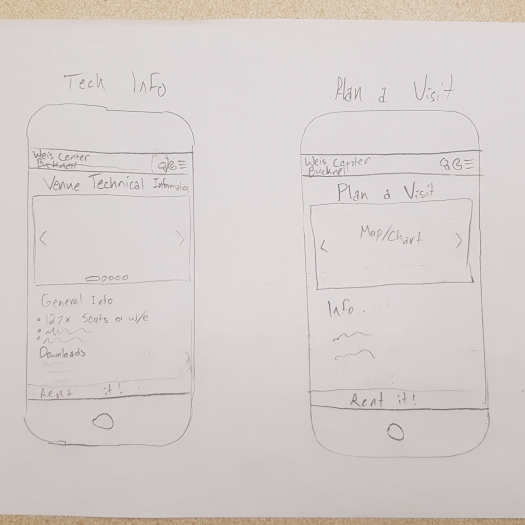 Tech Info
Weis Center
Bucknell
Venue Technical Information
General Info
127x Seats or w/e
Downloads
Rent it!
Plan a Visit
Weis Center
Bucknell
Plan a Visit
Map/Chart
Info.
Rent it!